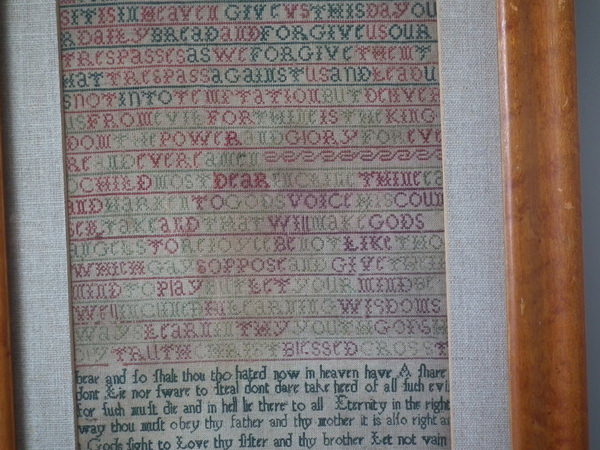 S IT IS IN HEAVEN GIVE US THIS DAY OU
R DAILY BREAD AND FORGIVE US OUR
TRESPASSES AS WE FORGIVE THEM T
HAT TRESPASS AGAINST US AND LEAD U
S NOT INTO TEMTATION BUT DELIVER
US FROM EVIL FOR THINE IS THE KING
DOM THE POWER AND GLORY FOR EVE
RE AND EVER AMEN
O CHILD MOST DEAR INCLINE THINE EA
AND HARKEN TO GODS VOICE HIS COUN
SEL TAKE AND THAT WILL MAKE GODS
ANGELS TO REJOYCE BE NOT LIKE THO
WHICH GAY SOPPOSE AND GIVE THEIR
MIND TO PLAY BUT LET YOUR MIND BE
WELL INCLINED IN LEARNING WISDOMS
WAY LEARN IN THY YOUTH GODS H
OLY TRUTH BLESSED CROSS T
bear and so shalt thou tho hated now in heaven have A share
dont Lie nor sware to steal dont dare take heed of all such evi
for such must die and in hell lie there to all Eternity in the right
way thou must obey thy father and thy mother it is also right an
Gods sight to Love thy sister and thy brother Let not vain